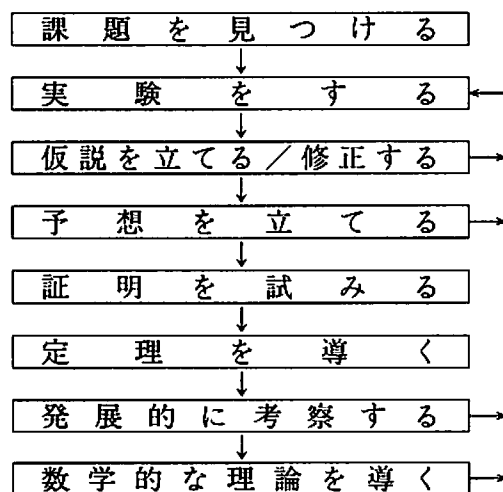 課題を見つける
実験をする
仮説を立てる／修正する
予想を立てる
証明を試みる
定理を導く
発展的に考察する
数学的な理論を導く